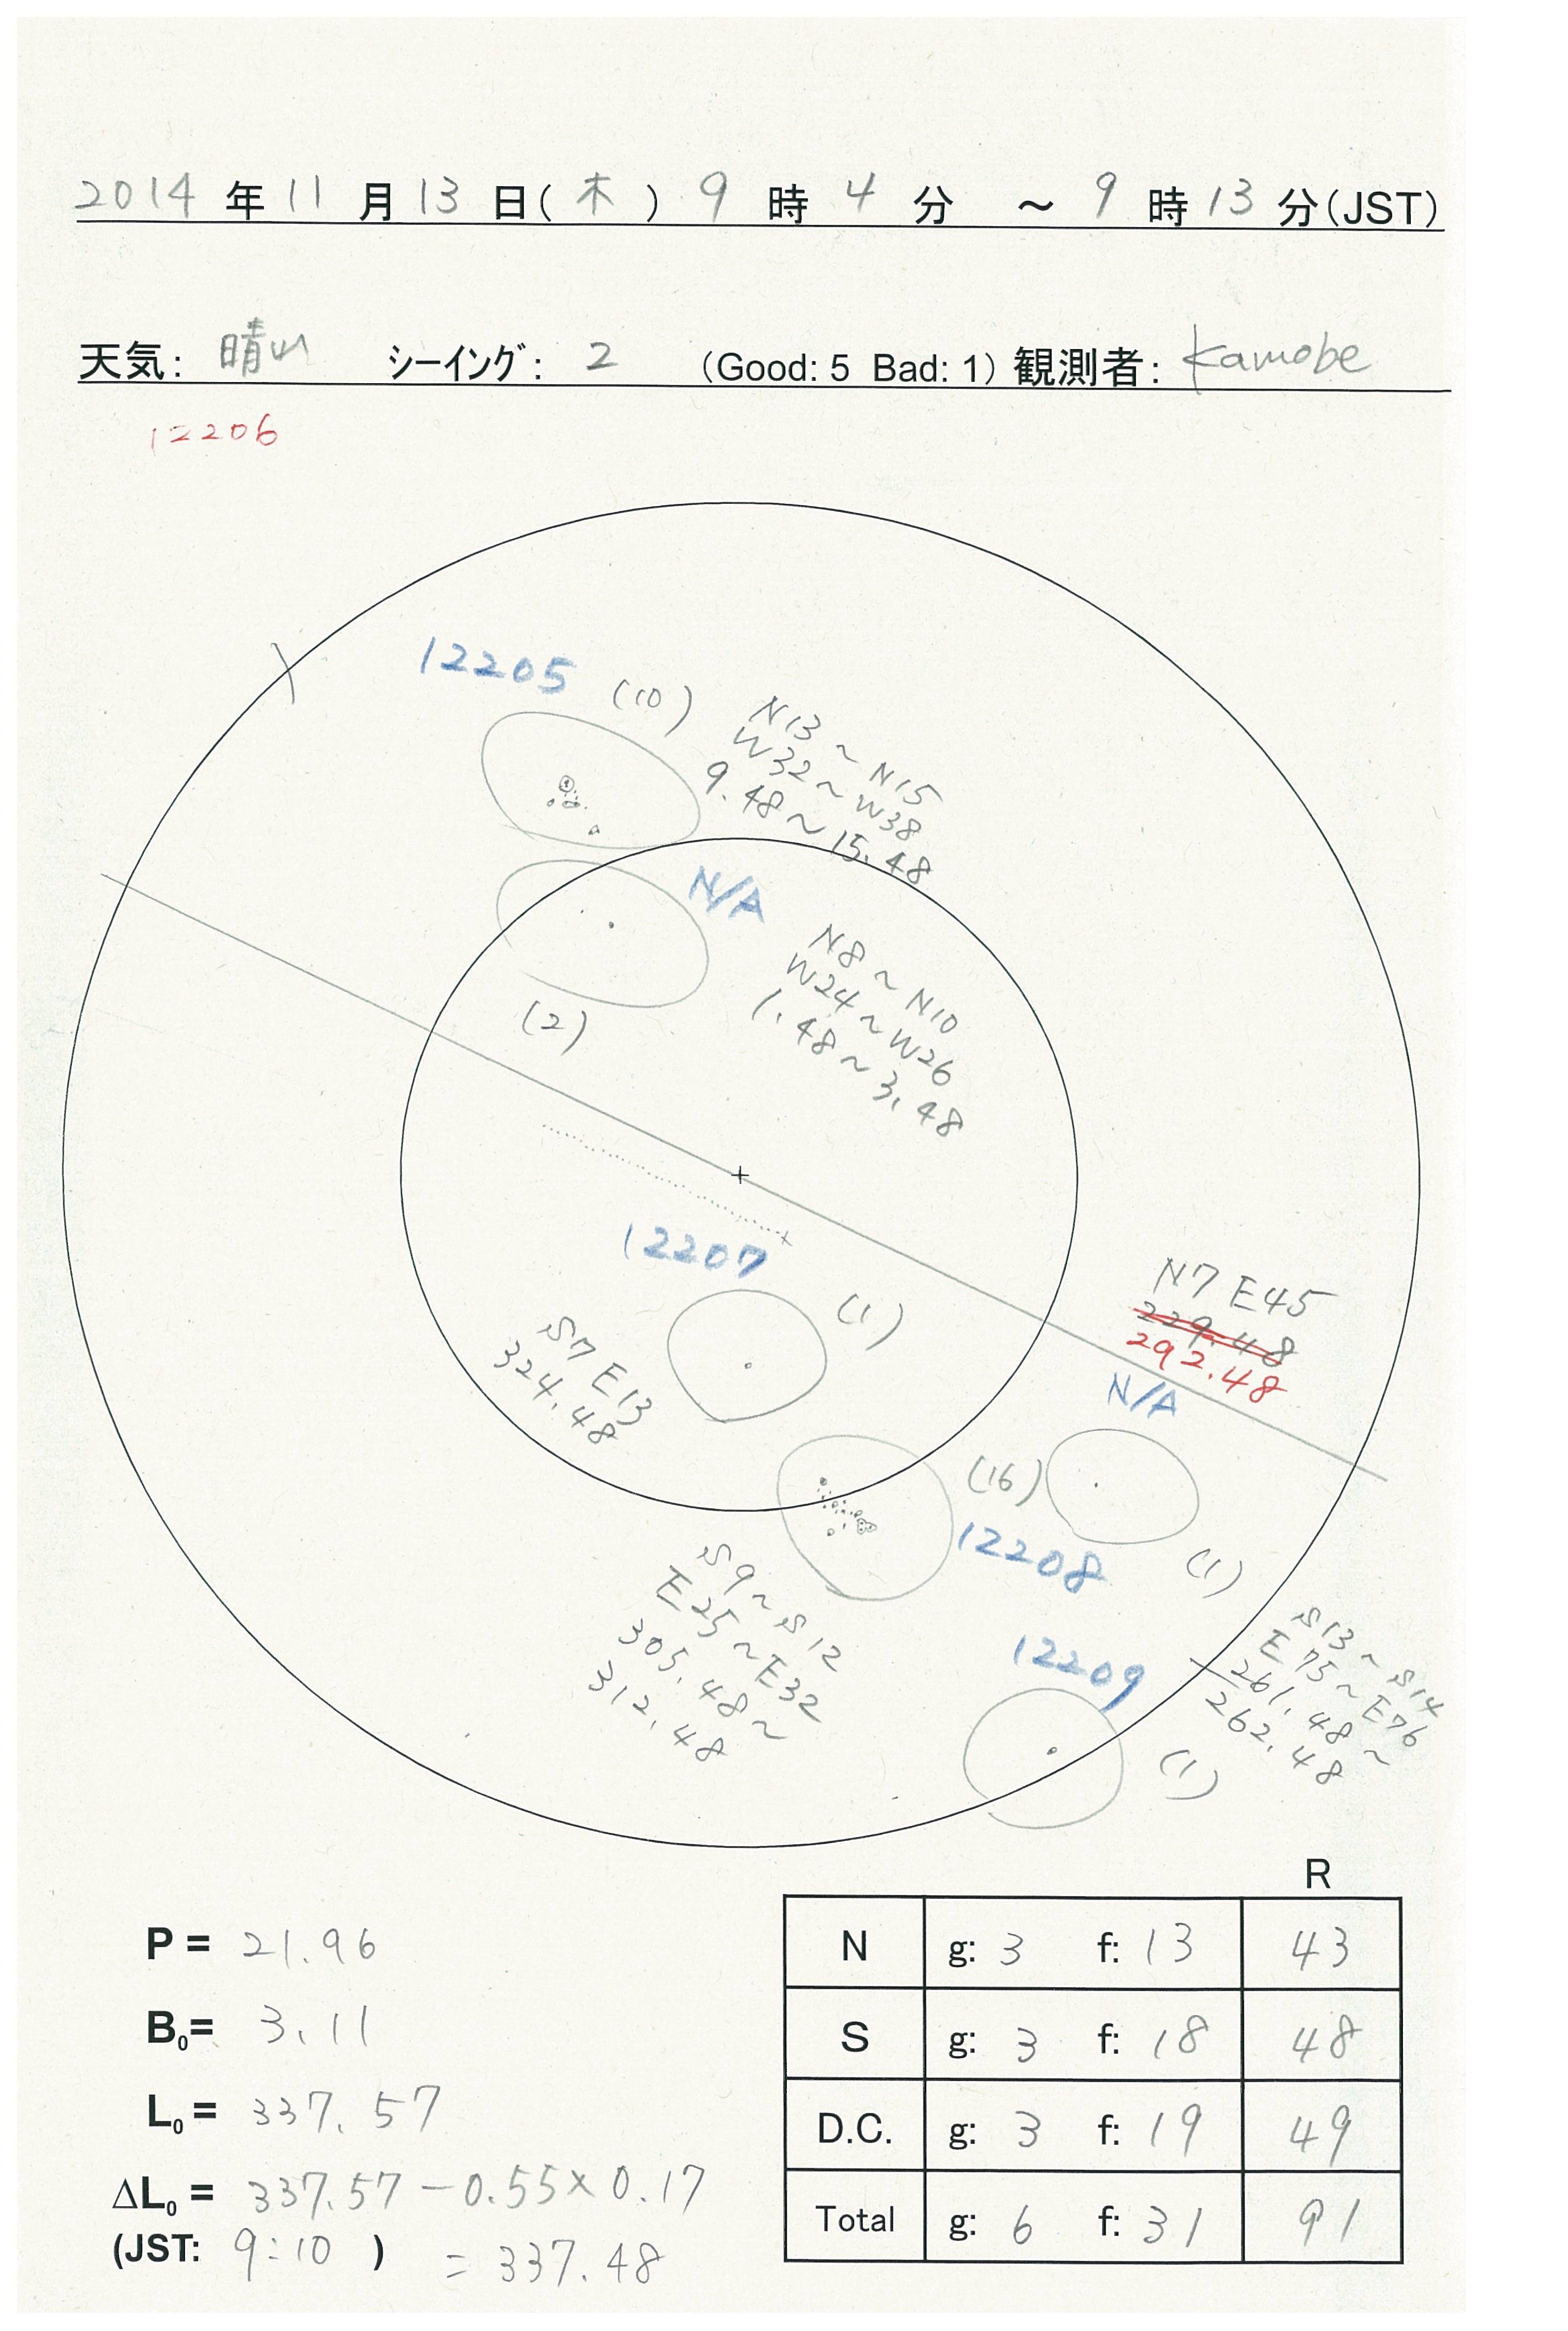 2014 年 11 月 13 日( 木 ) 9 時 4 分 ～ 9 時 13 分(JST)
天気: 晴れ シーイング: 2 (Good: 5 Bad: 1) 観測者: Kamobe
12206
12205 (10)
N13～N15
W32～W38
9.48～15.48
N/A
N8～N10
W24～W26
1.48～3.48
(2)
12207
(1)
S7 E13
324.48
N7 E45
229.48
292.48
N/A
(1)
(16)
12208
S9～S12
E25～E32
305.48～
312.48
12209
(1)
S13～S14
E75～E76
261.48～
262.48
P = 21.96
B0= 3.11
L0 = 337.57
ΔL0 = 337.57 - 0.55×0.17
(JST: 9:10 ) = 337.48
R
N g: 3 f: 13 43
S g: 3 f: 18 48
D.C. g: 3 f: 19 49
Total g: 6 f: 31 91